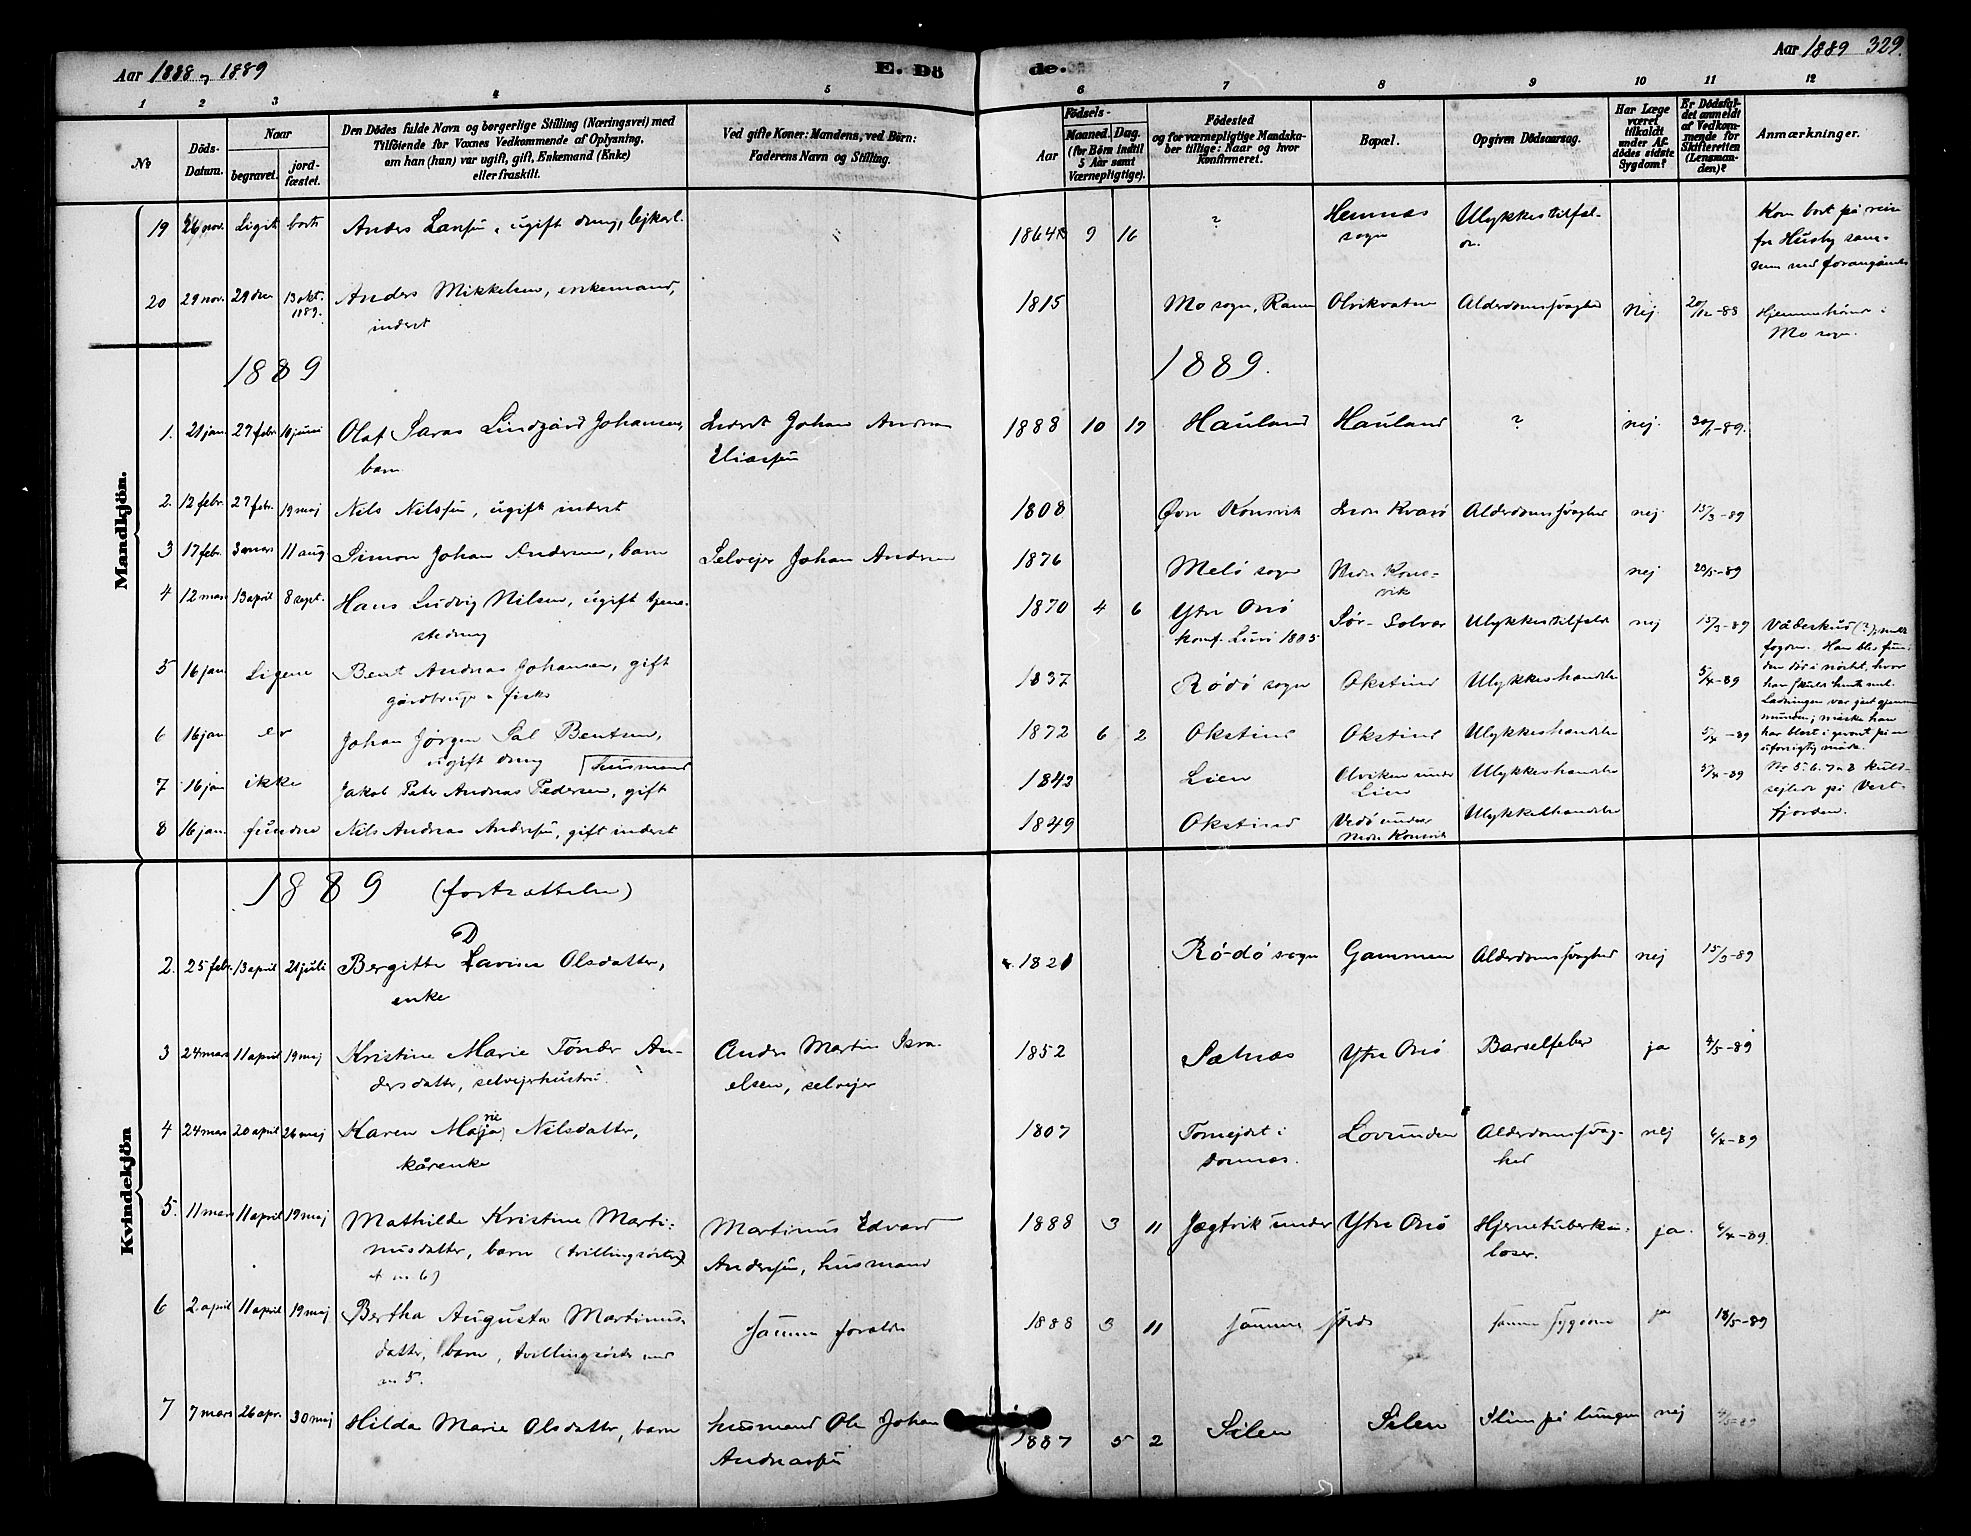 Aar 1888 og 1889
E. Dö
de.
Aar 1889 329.
1 2 3 4 5 6 7 8 9 10 11 12
No
Döds-Datum.
Naar
begravet.
jord-fæstet.
Den Dödes fulde Navn og borgerlige Stilling (Næringsvei) med
Tilföiende for Voxnes Vedkommende af Oplysning,
om han (hun) var ugift, gift, Enkemand (Enke)
eller fraskilt.
Ved gifte Koner: Mandens, ved Börn:
Faderens Navn og Stilling.
Födsels-
Aar
Maaned. Dag.
(for Børn indtil
5 Aar samt
Værnepligtige).
Födested
og for værnepligtige Mandska-
ber tillige: Naar og hvor
konfirmeret.
Bopæl.
Opgiven Dödsaarsag.
Har Læge
været
tilkaldt
under Af-
dödes sidste
Sygdom?
Er Dödsfal-
det anmeldt
af Vedkom-
mende for
Skifteretten
(Lensman-
den)?
Anmærkninger.
Mandkjön.
19 26 nov. Liget borte Anders Larsen, ugift dreng, 1864 9 16 ? Hemnæs sogn Ulykkestilfæl-
Kom bort på reise
fra Husby sam-
men med forangående
20 29 nov. 29 den 13 okt. 1889. Anders Mikkelsen, enkemand, 1815 Mo sogn, Ranen Alderdomssvaghed Nej. 20/12-88
inderst
Mo sogn.
1889 1889.
1. 21 jan. 27 febr. 16 juni Olaf Johansen, Inderst Johan Andreas 1888 10 17 Hauland Hauland ? nej. 30/1-89.
barn Eliassen
2. 12 febr. 27 febr. 19 maj Nils Nilssen, ugift inderst 1808 Øvre Konsvik Indre Kvarø Alderdomssvaghed nej. 15/3-89
3 17 febr. 3 mars 11 aug. Simon Johan Andersen, barn Selvejer Johan Andersen 1876 Melö sogn Nedre Kons-
vik nej 20/5-89
4 12 mars 13 april 8 sept. Hans Ludvig Nilsen, ugift tjene-
stedreng 1870 4 6 Ytre Onö
konf. Lurö Sör-Solvær Ulykkestilfælde nej 15/3-89
5 16 jan. Ligene Bent Andreas Johansen, gift
gårdbruger & fisker 1837 Rödö sogn Okstind Ulykkeshændelse 5/4-89
6 16 jan er Johan Jörgen Sal Bentsen,
ugift dreng 1872 6 2 Okstind Okstind Ulykkeshændelse 5/4-89
7 16 jan ikke Jakob Peter Andreas Pedersen, gift husmand 1842 Lien Olviken under
Lien Ulykkeshændelse 5/4-89
No 5. 6. 7 & 8 kuld-
sejlede på Vest-
fjorden.
8 16 jan. fundne Nils Andreas Andersen, gift inderst 1849 Okstind under
Nedre Konsvik Ulykkeshændelse
Kvindekjön
1889 (fortsættelse)
2. 25 febr. 13 april 21 juli Bergitte Davina Olsdatter,
enke 1821 Rödö sogn Gammen Alderdomssvaghed nej 15/3-89
3 24 mars 11 april 19 maj Kristine Marie Tönder An-
dersdatter, selvejerhustru. Anders Martin Isra-
elsen, selvejer 1852 Sætnæs Ytre Onö Barselfeber ja 4/5-89
4 24 mars 20 april 26 maj Karen Marie (ja) Nilsdatter,
kårenke 1807 i
Dønnæs. Lovunden Alderdomssvag-
hed nej 6/4-89
5. 11 mars 11 april 19 maj Mathilde Kristine Marti-
nusdatter, barn (tvillingsöster
til no 6) Martinus Edvard
Andersen, husmand 1888 3 11 Jægtvik under Ytre Onö Hjernetuberku-
loser. ja. 6/4-89.
6 2. april 11 april 19 maj Bertha Augusta Martinus-
datter, barn, tvillingsöster med
no 5. Samme forældre 1888 3 11 samme sted samme sygdom ja 18/5-89
7 7 mars 26 apr. 30 maj Hilda Marie Olsdatter, barn husmand Ole Johan
Andreassen 1887 5 2 Silen Silen Slim på lungen nej 4/5-89